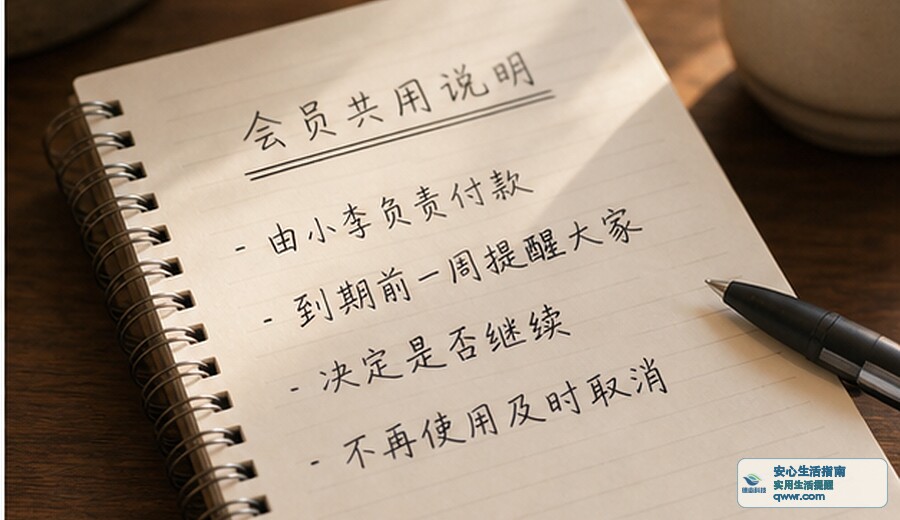 会员共用说明
- 由小李负责付款
- 到期前一周提醒大家
- 决定是否继续
- 不再使用及时取消
安心生活指南
实用生活提醒
qwwr.com